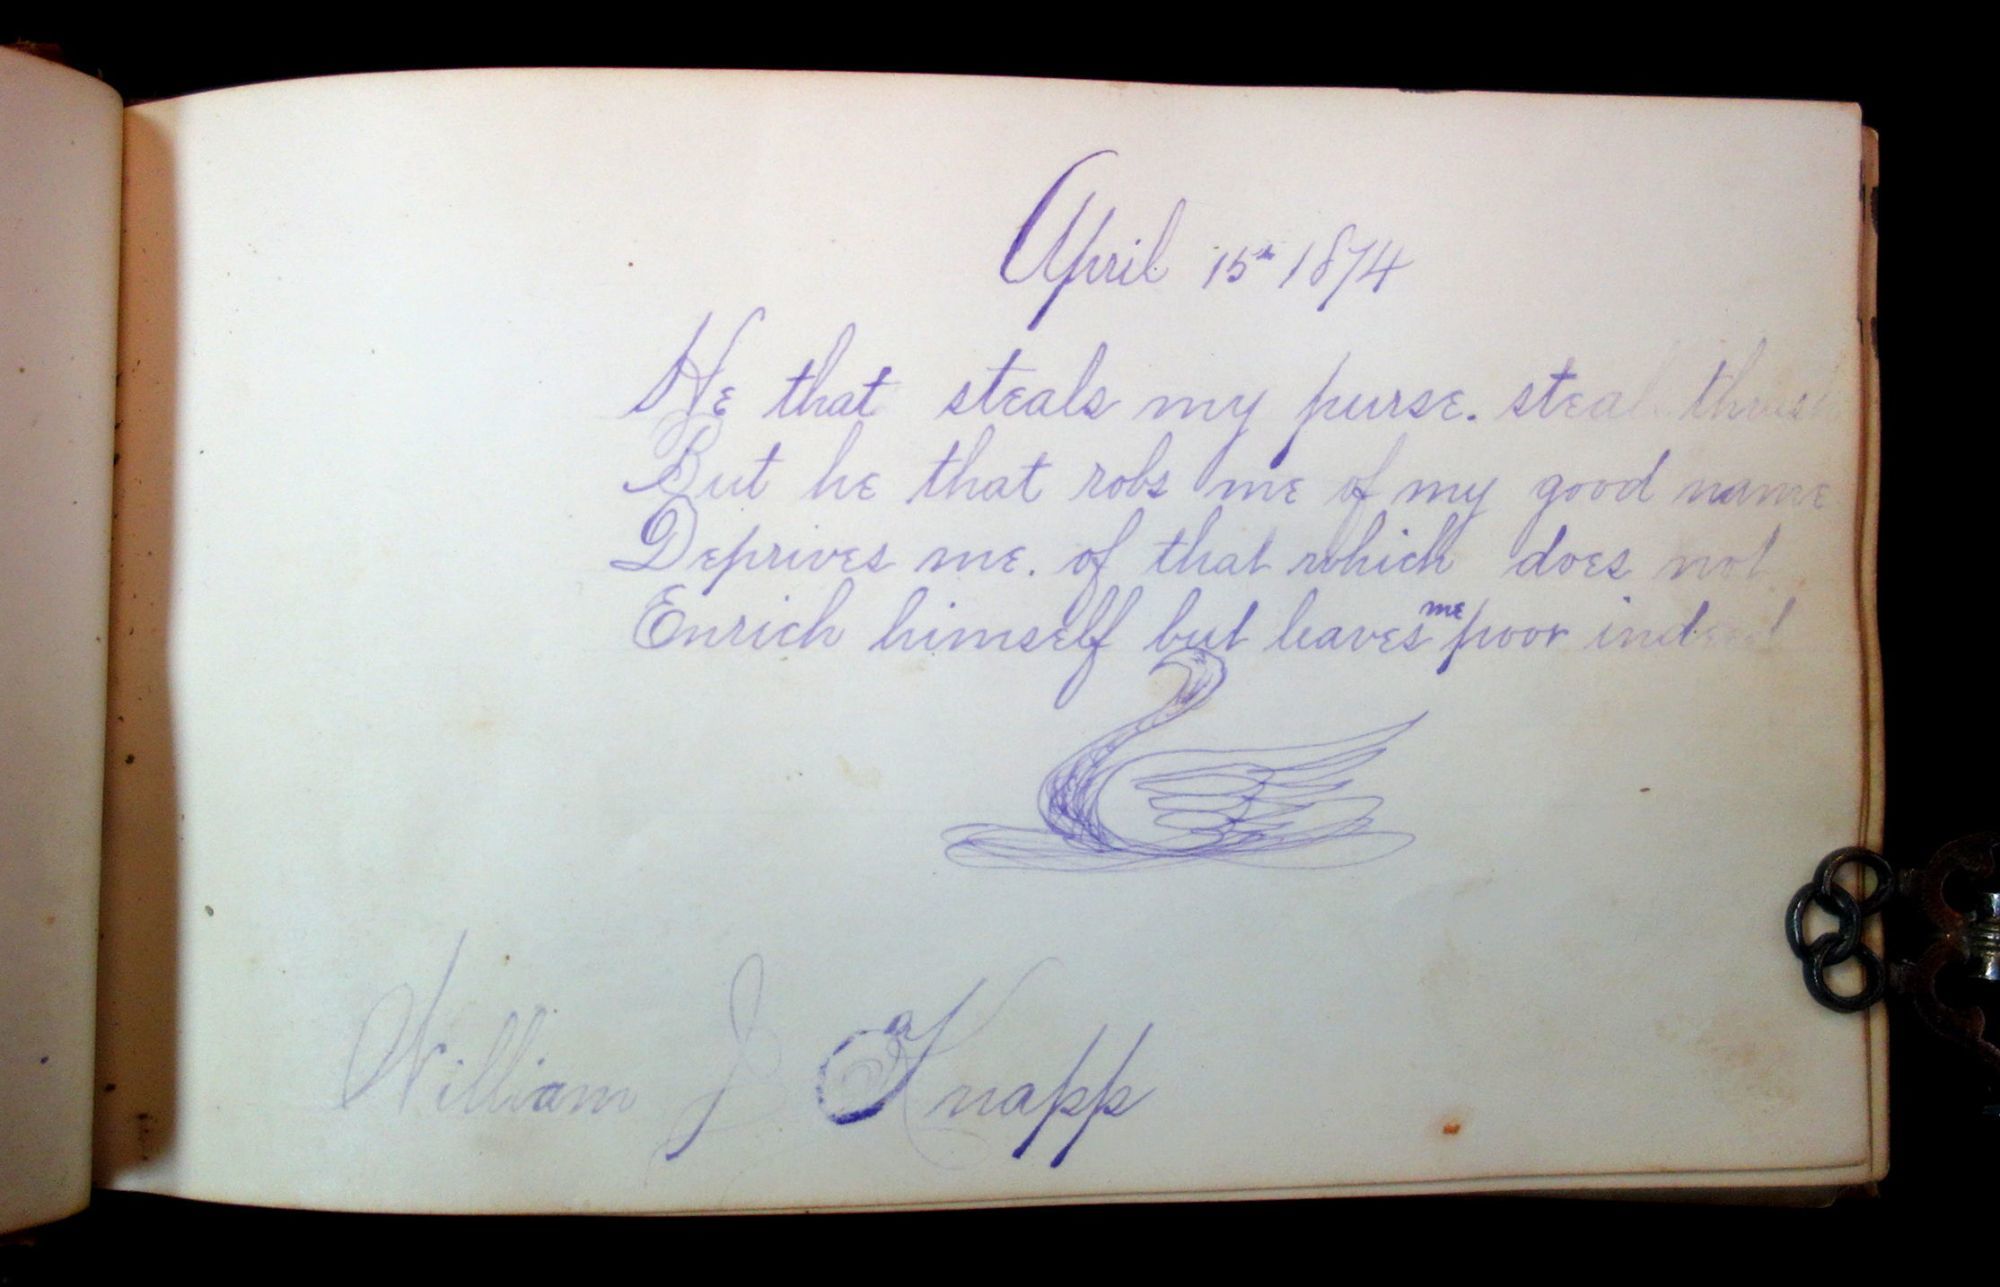 April 15th 1874
He that steals my purse. steal thrash
But he that robs me of my good name
Deprives me. of that which does not
Enrich himself but leaves me poor indeed
William J Knapp